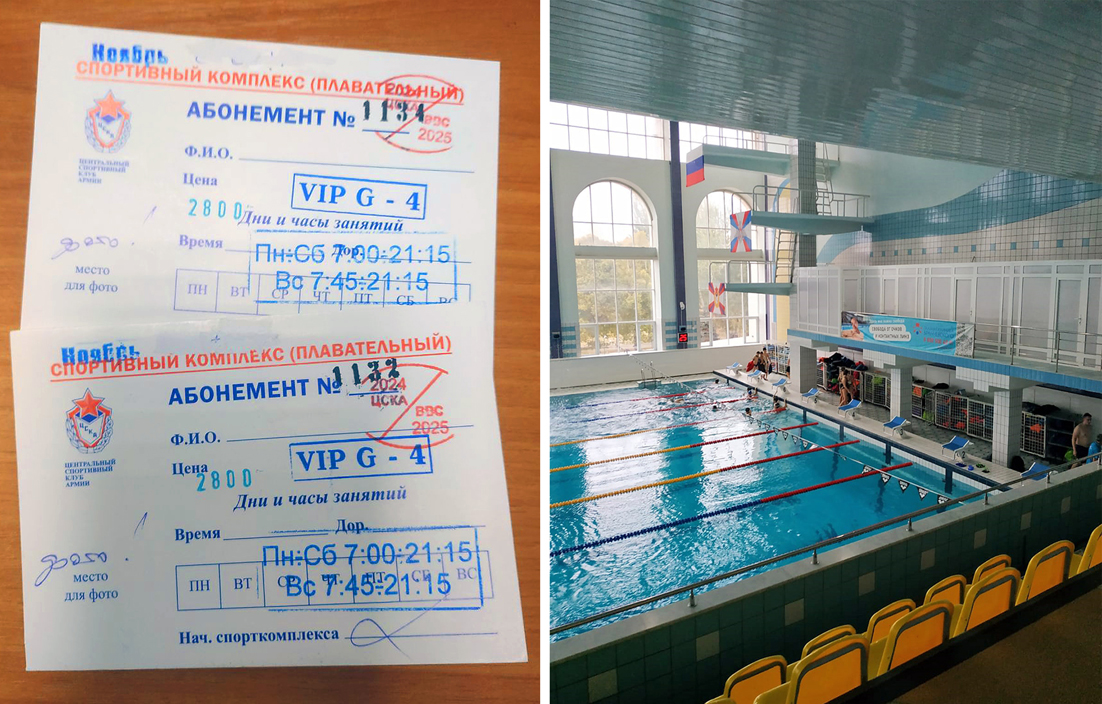 Ноябрь
СПОРТИВНЫЙ КОМПЛЕКС (ПЛАВАТЕЛЬНЫЙ)
АБОНЕМЕНТ № 1134
2024
ЦСКА
ВВС
2025
ЦЕНТРАЛЬНЫЙ
СПОРТИВНЫЙ
КЛУБ
АРМИИ
Ф.И.О.
Цена
VIP G - 4
2800
Дни и часы занятий
Время Дор.
Пн-Сб 7:00-21:15
Вс 7:45-21:15
место
для фото
ПН ВТ СР ЧТ ПТ СБ ВС
Ноябрь
СПОРТИВНЫЙ КОМПЛЕКС (ПЛАВАТЕЛЬНЫЙ)
АБОНЕМЕНТ № 1132
2024
ЦСКА
ВВС
2025
ЦСКА
ЦЕНТРАЛЬНЫЙ
СПОРТИВНЫЙ
КЛУБ
АРМИИ
Ф.И.О.
Цена
VIP G - 4
2800
Дни и часы занятий
Время Дор.
Пн-Сб 7:00-21:15
Вс 7.45-21:15
место
для фото
ПН ВТ СР ЧТ ПТ СБ ВС
Нач. спорткомплекса
СВОБОДА ОТ ОЧКОВ
И КОНТАКТНЫХ ЛИНЗ